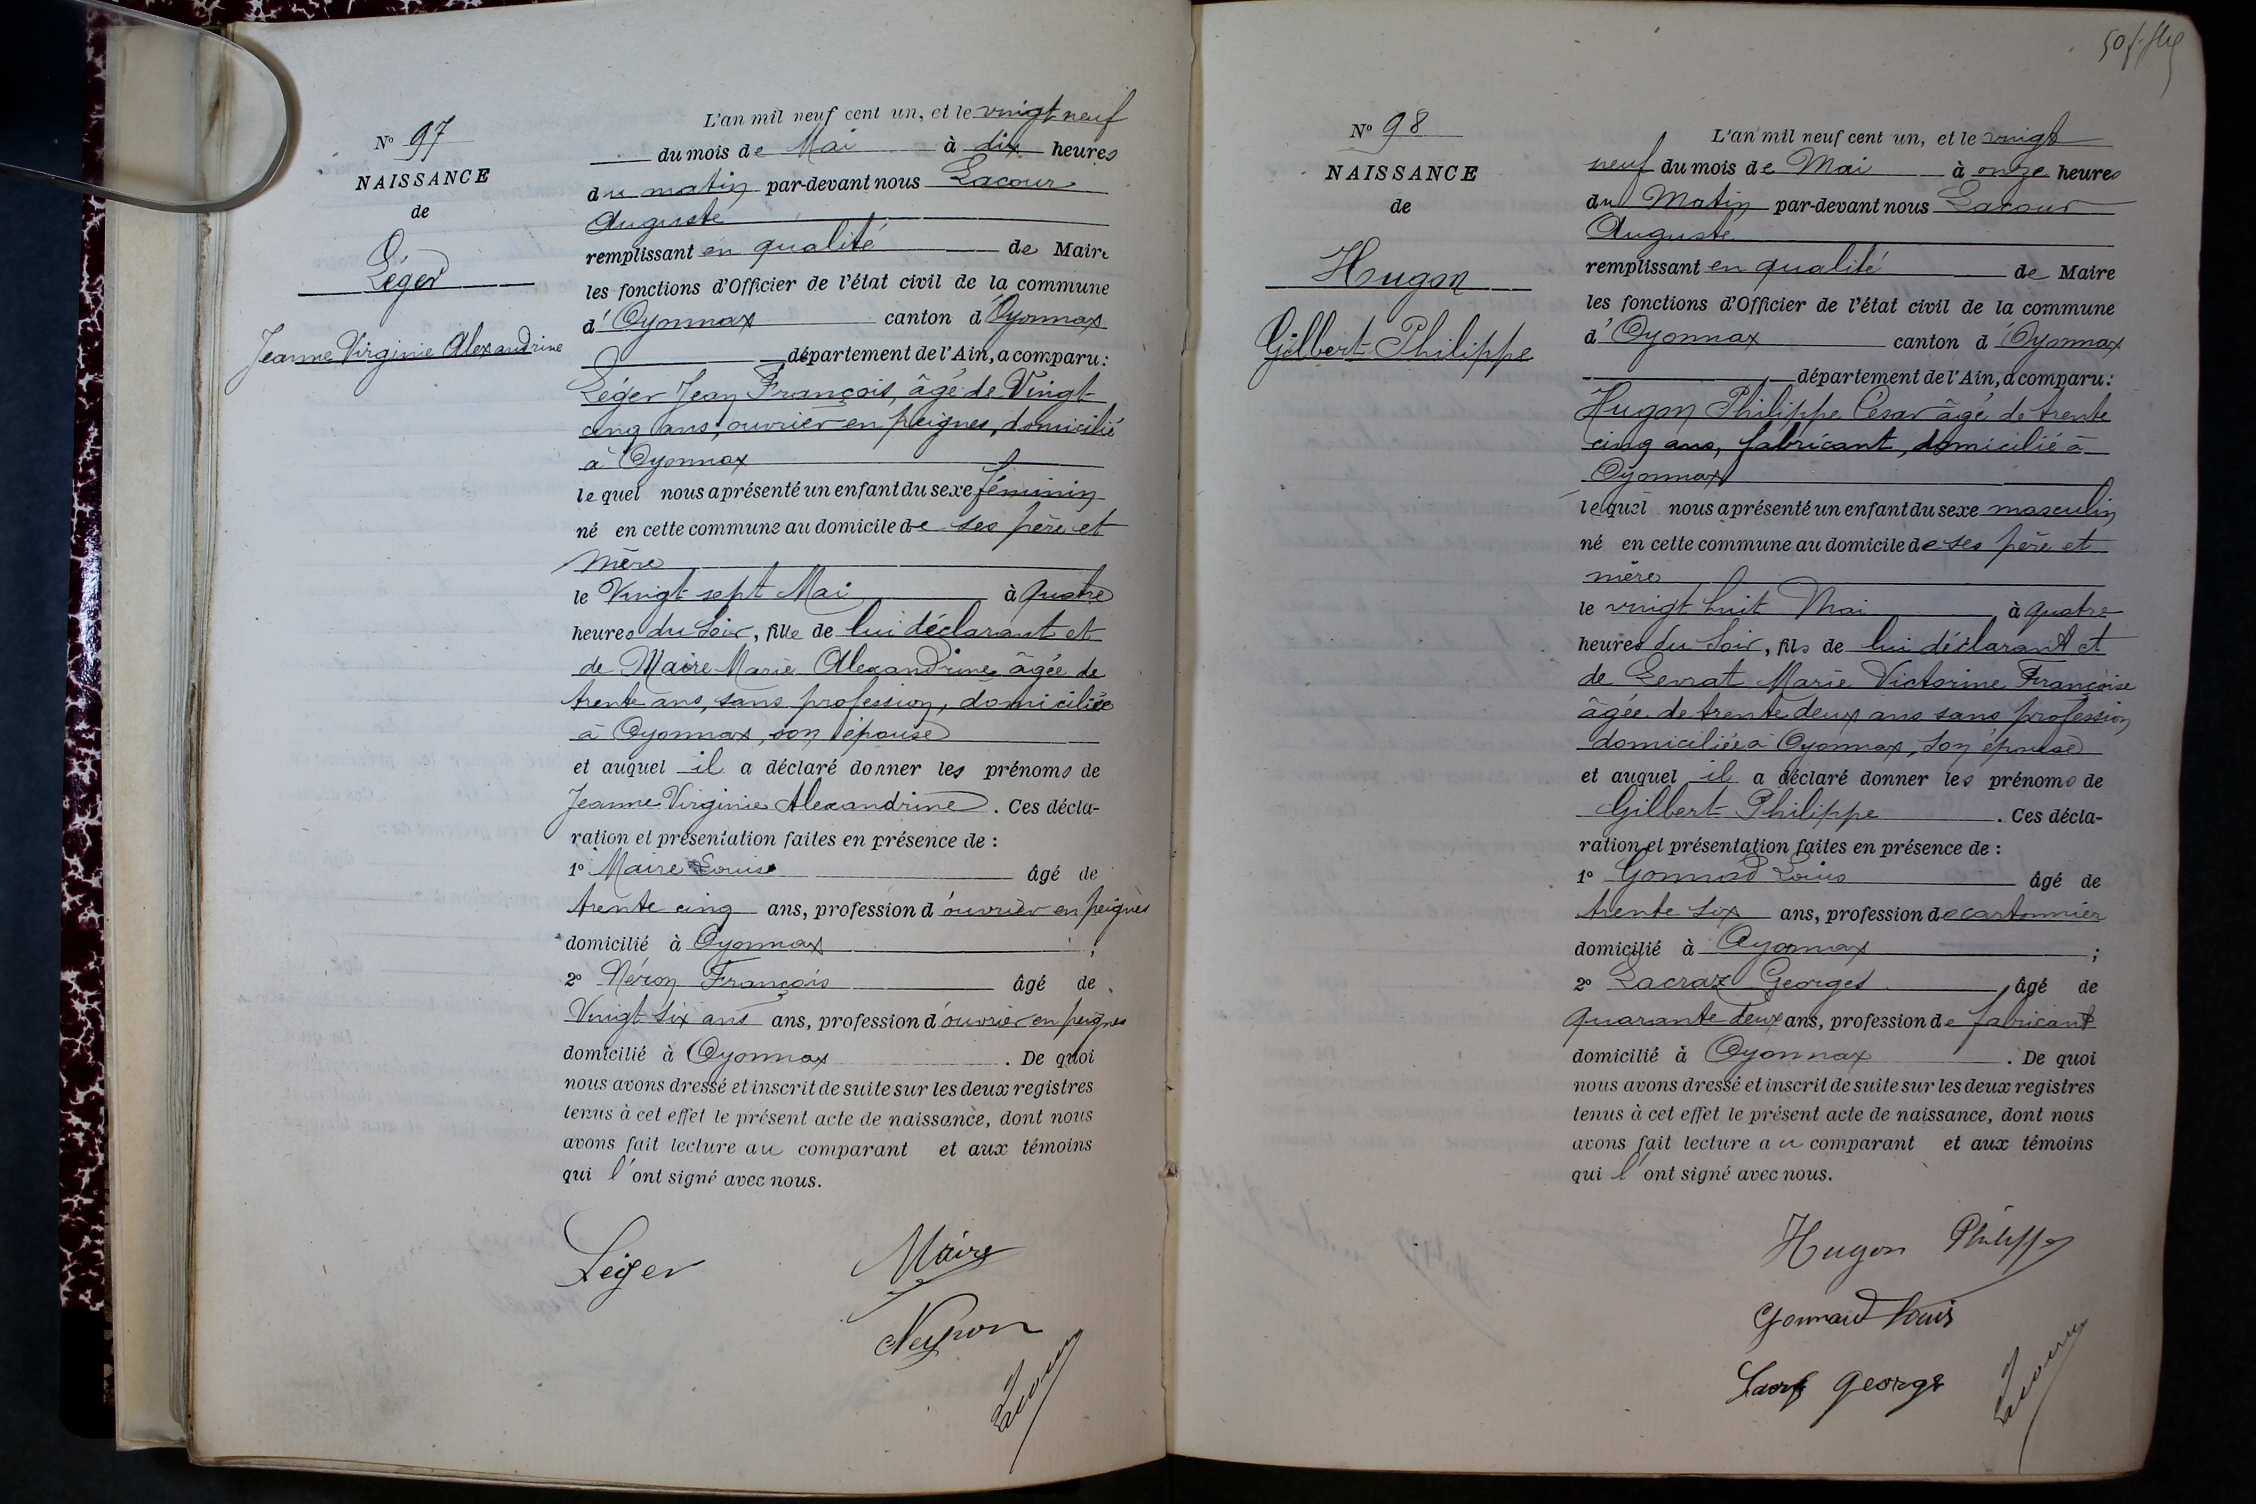 N° 97
NAISSANCE
de
Léger
Jeanne Virginie Alexandrine
L'an mil neuf cent un, et le vingt neuf
du mois de Mai à dix heures
du matin par-devant nous Lacour
Auguste
remplissant en qualité de Maire
les fonctions d'Officier de l'état civil de la commune
d'Oyonnax canton d'Oyonnax
département de l'Ain, a comparu :
Léger Jean François, âgé de Vingt
cinq ans, ouvrier en peignes, domicilié
à Oyonnax
lequel nous a présenté un enfant du sexe féminin
né en cette commune au domicile de ses père et
mère
le Vingt sept Mai à quatre
heures du soir, fille de lui déclarant et
de Maire Marie Alexandrine âgée de
trente ans, sans profession, domiciliée
à Oyonnax, son épouse
et auquel il a déclaré donner les prénoms de
Jeanne Virginie Alexandrine. Ces décla-
ration et présentation faites en présence de :
1° Maire Louis âgé de
trente cinq ans, profession d'ouvrier en peignes
domicilié à Oyonnax ;
2° Néron François âgé de
Vingt six ans ans, profession d'ouvrier en peignes
domicilié à Oyonnax. De quoi
nous avons dressé et inscrit de suite sur les deux registres
tenus à cet effet le présent acte de naissance, dont nous
avons fait lecture au comparant et aux témoins
qui l'ont signé avec nous.
Léger Maire
Neyron
Lacour
N° 98
NAISSANCE
de
Hugon
Gilbert Philippe
L'an mil neuf cent un, et le vingt
neuf du mois de Mai à onze heures
du Matin par-devant nous Lacour
Auguste
remplissant en qualité de Maire
les fonctions d'Officier de l'état civil de la commune
d'Oyonnax canton d'Oyonnax
département de l'Ain, a comparu :
Hugon Philippe César âgé de trente
cinq ans, fabricant, domicilié à
Oyonnax
lequel nous a présenté un enfant du sexe masculin
né en cette commune au domicile de ses père et
mère
le vingt huit Mai à quatre
heures du soir, fils de lui déclarant et
de Levrat Marie Victorine Françoise
âgée de trente deux ans sans profession
domiciliée à Oyonnax, son épouse
et auquel il a déclaré donner les prénoms de
Gilbert Philippe. Ces décla-
ration et présentation faites en présence de :
1° Gonnad Louis âgé de
trente six ans, profession de cartonnier
domicilié à Oyonnax ;
2° Lacraz Georges âgé de
quarante deux ans, profession de fabricant
domicilié à Oyonnax. De quoi
nous avons dressé et inscrit de suite sur les deux registres
tenus à cet effet le présent acte de naissance, dont nous
avons fait lecture au comparant et aux témoins
qui l'ont signé avec nous.
Hugon Philippe
Gonnard Louis
George
Lacour